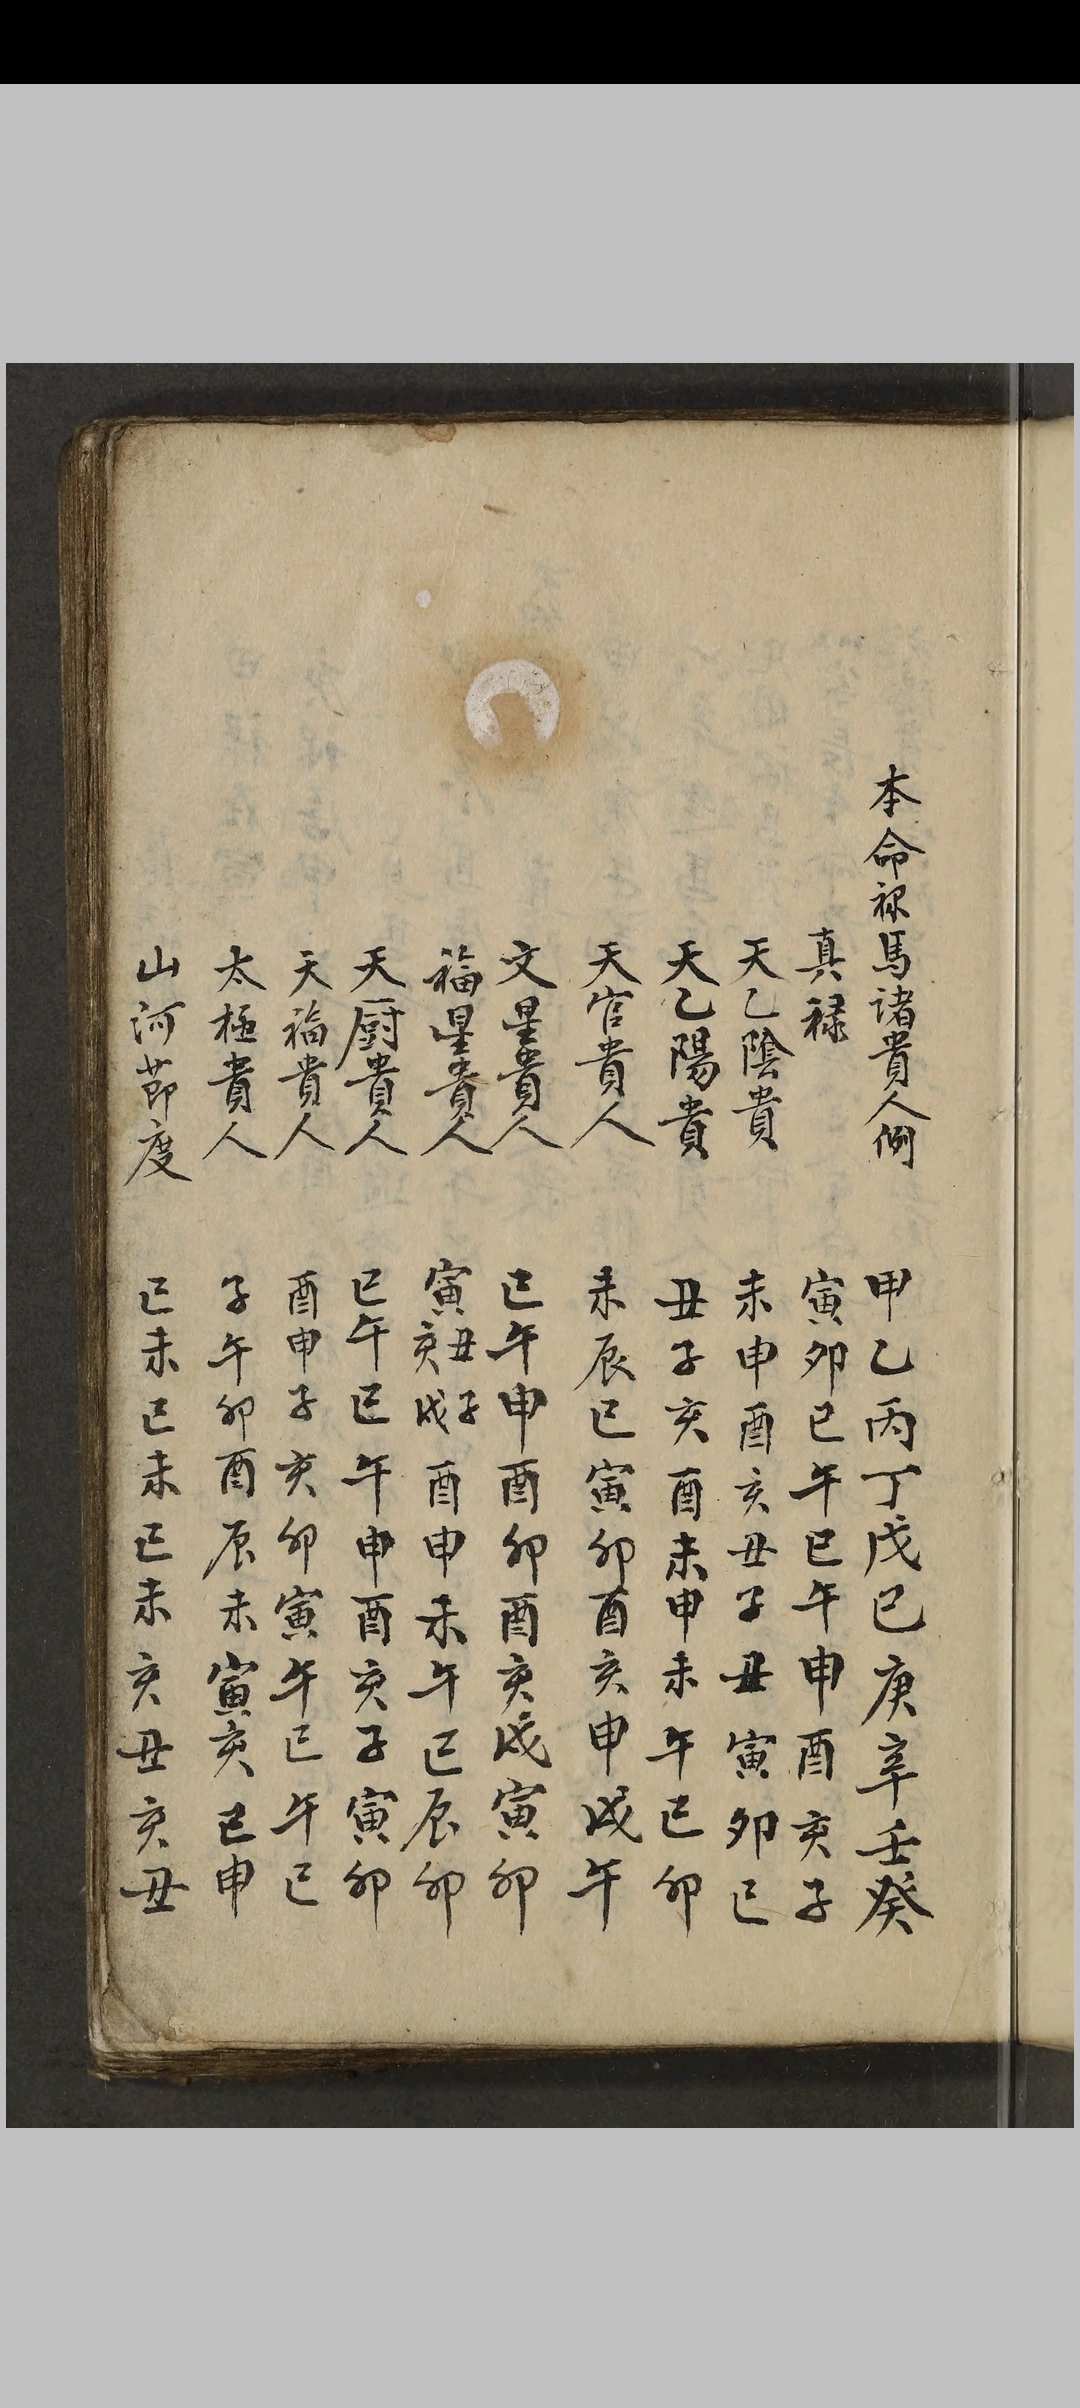 本命祿馬諸貴人例 甲乙丙丁戊己庚辛壬癸
真祿 寅卯巳午巳午申酉亥子
天乙陰貴 未申酉亥丑子丑寅卯巳
天乙陽貴 丑子亥酉未申未午巳卯
天官貴人 未辰巳寅卯酉亥申戌午
文星貴人 巳午申酉卯酉亥戌寅卯
福星貴人 寅丑亥子戌酉申未午巳辰卯
天厨貴人 巳午巳午申酉亥子寅卯
天福貴人 酉申子亥卯寅午巳午巳
太極貴人 子午卯酉辰未寅亥巳申
山河節度 巳未巳未巳未亥丑亥丑